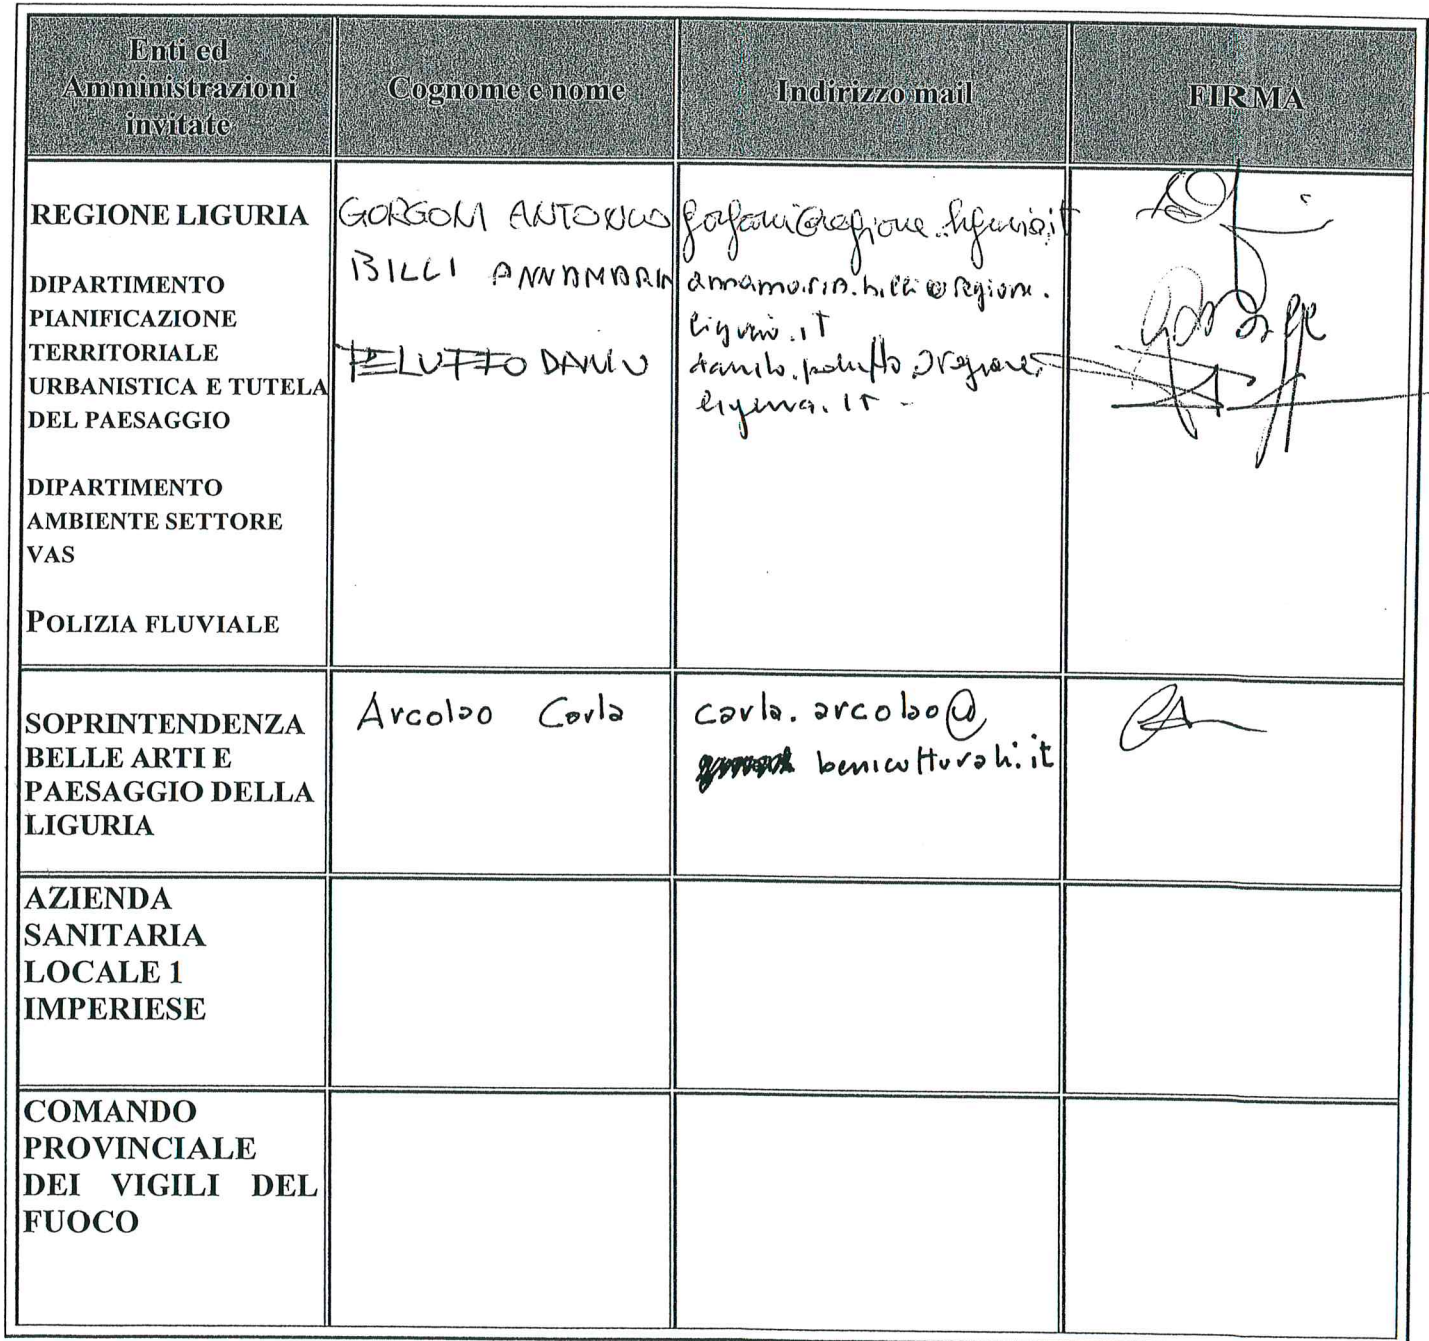 Enti ed
Amministrazioni
invitate
Cognome e nome
Indirizzo mail
FIRMA
REGIONE LIGURIA
DIPARTIMENTO
PIANIFICAZIONE
TERRITORIALE
URBANISTICA E TUTELA
DEL PAESAGGIO
DIPARTIMENTO
AMBIENTE SETTORE
VAS
POLIZIA FLUVIALE
GORGONI ANTONINO
BILLI ANNAMARIA
PELUFFO DANILO
annamaria.billi@regione.
liguria.it
danilo.peluffo@regione.
liguria.it -
SOPRINTENDENZA
BELLE ARTI E
PAESAGGIO DELLA
LIGURIA
Arcolao Carla
carla.arcolao@
beniculturali.it
AZIENDA
SANITARIA
LOCALE 1
IMPERIESE
COMANDO
PROVINCIALE
DEI VIGILI DEL
FUOCO